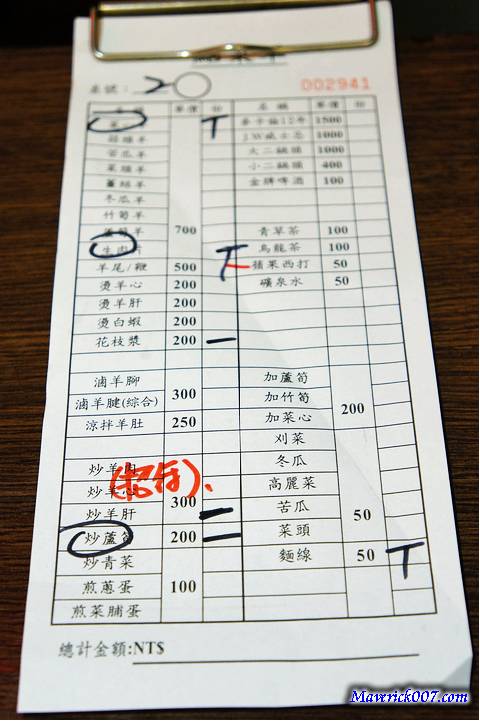 點菜單
桌號: 20 002941
名稱 單價 份 名稱 單價 份
麥卡倫12年 1500
蒜頭羊 J.W威士忌 1000
苦瓜羊 大二鍋頭 1000
菜頭羊 小二鍋頭 400
薑絲羊 金牌啤酒 100
冬瓜羊
竹筍羊
700 青草茶 100
牛肉 烏龍茶 100
羊尾/鞭 500 蘋果西打 50
燙羊心 200 礦泉水 50
燙羊肝 200
燙白蝦 200
花枝漿 200 一
滷羊腳 加蘆筍
滷羊腱(綜合) 300 加竹筍
涼拌羊肚 250 加菜心 200
刈菜
炒羊肉 冬瓜
炒羊心 高麗菜
炒羊肝 300 一 苦瓜 50
炒蘆筍 200 一 菜頭
炒青菜 麵線 50
煎蔥蛋 100
煎菜脯蛋
總計金額:NT$
Maverick007.com